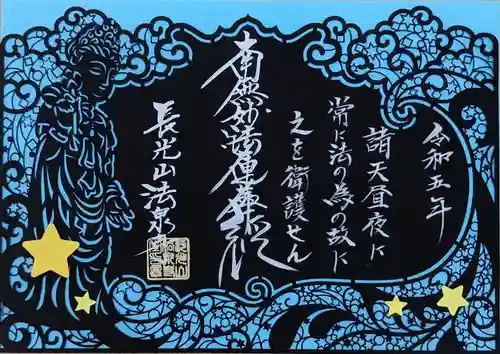 令和五年
諸天昼夜に
常に法の為の故に
之を衛護せん
南無妙法蓮華経
長光山法泉寺